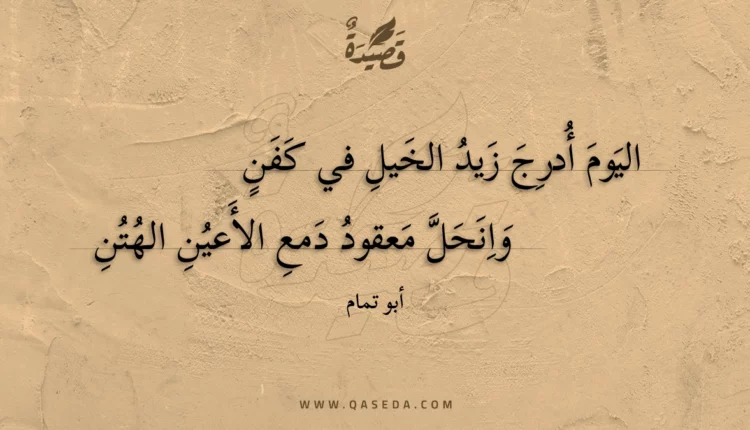 قصيدة
اليَومَ أُدرِجَ زَيدُ الخَيلِ في كَفَنٍ
وَاِنَحَلَّ مَعقودُ دَمعِ الأَعيُنِ الهُتُنِ
أبو تمام
WWW.QASEDA.COM